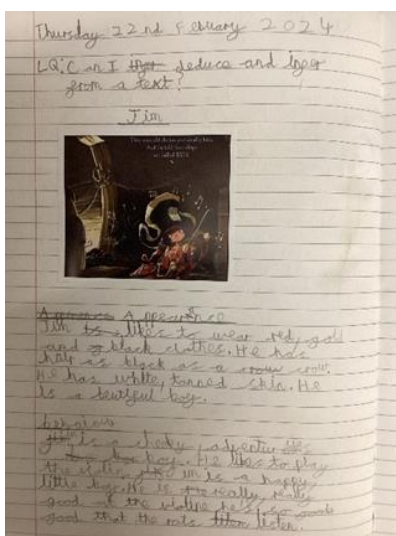 Thursday 22nd Febuary 2024
LQ: Can I that deduce and infer
from a text?
Jim
Appearance
Jim is likes to wear red, gold
and black clothes. He has
hair as black as a crow.
He has white, tanned skin. He
is a beutiful boy.
behaviour
is a cheeky, adventur
boy. He likes to play
the violin. Jim is a happy
little boy. He is really, really
good at the violine he's so good
good that the rats listen.